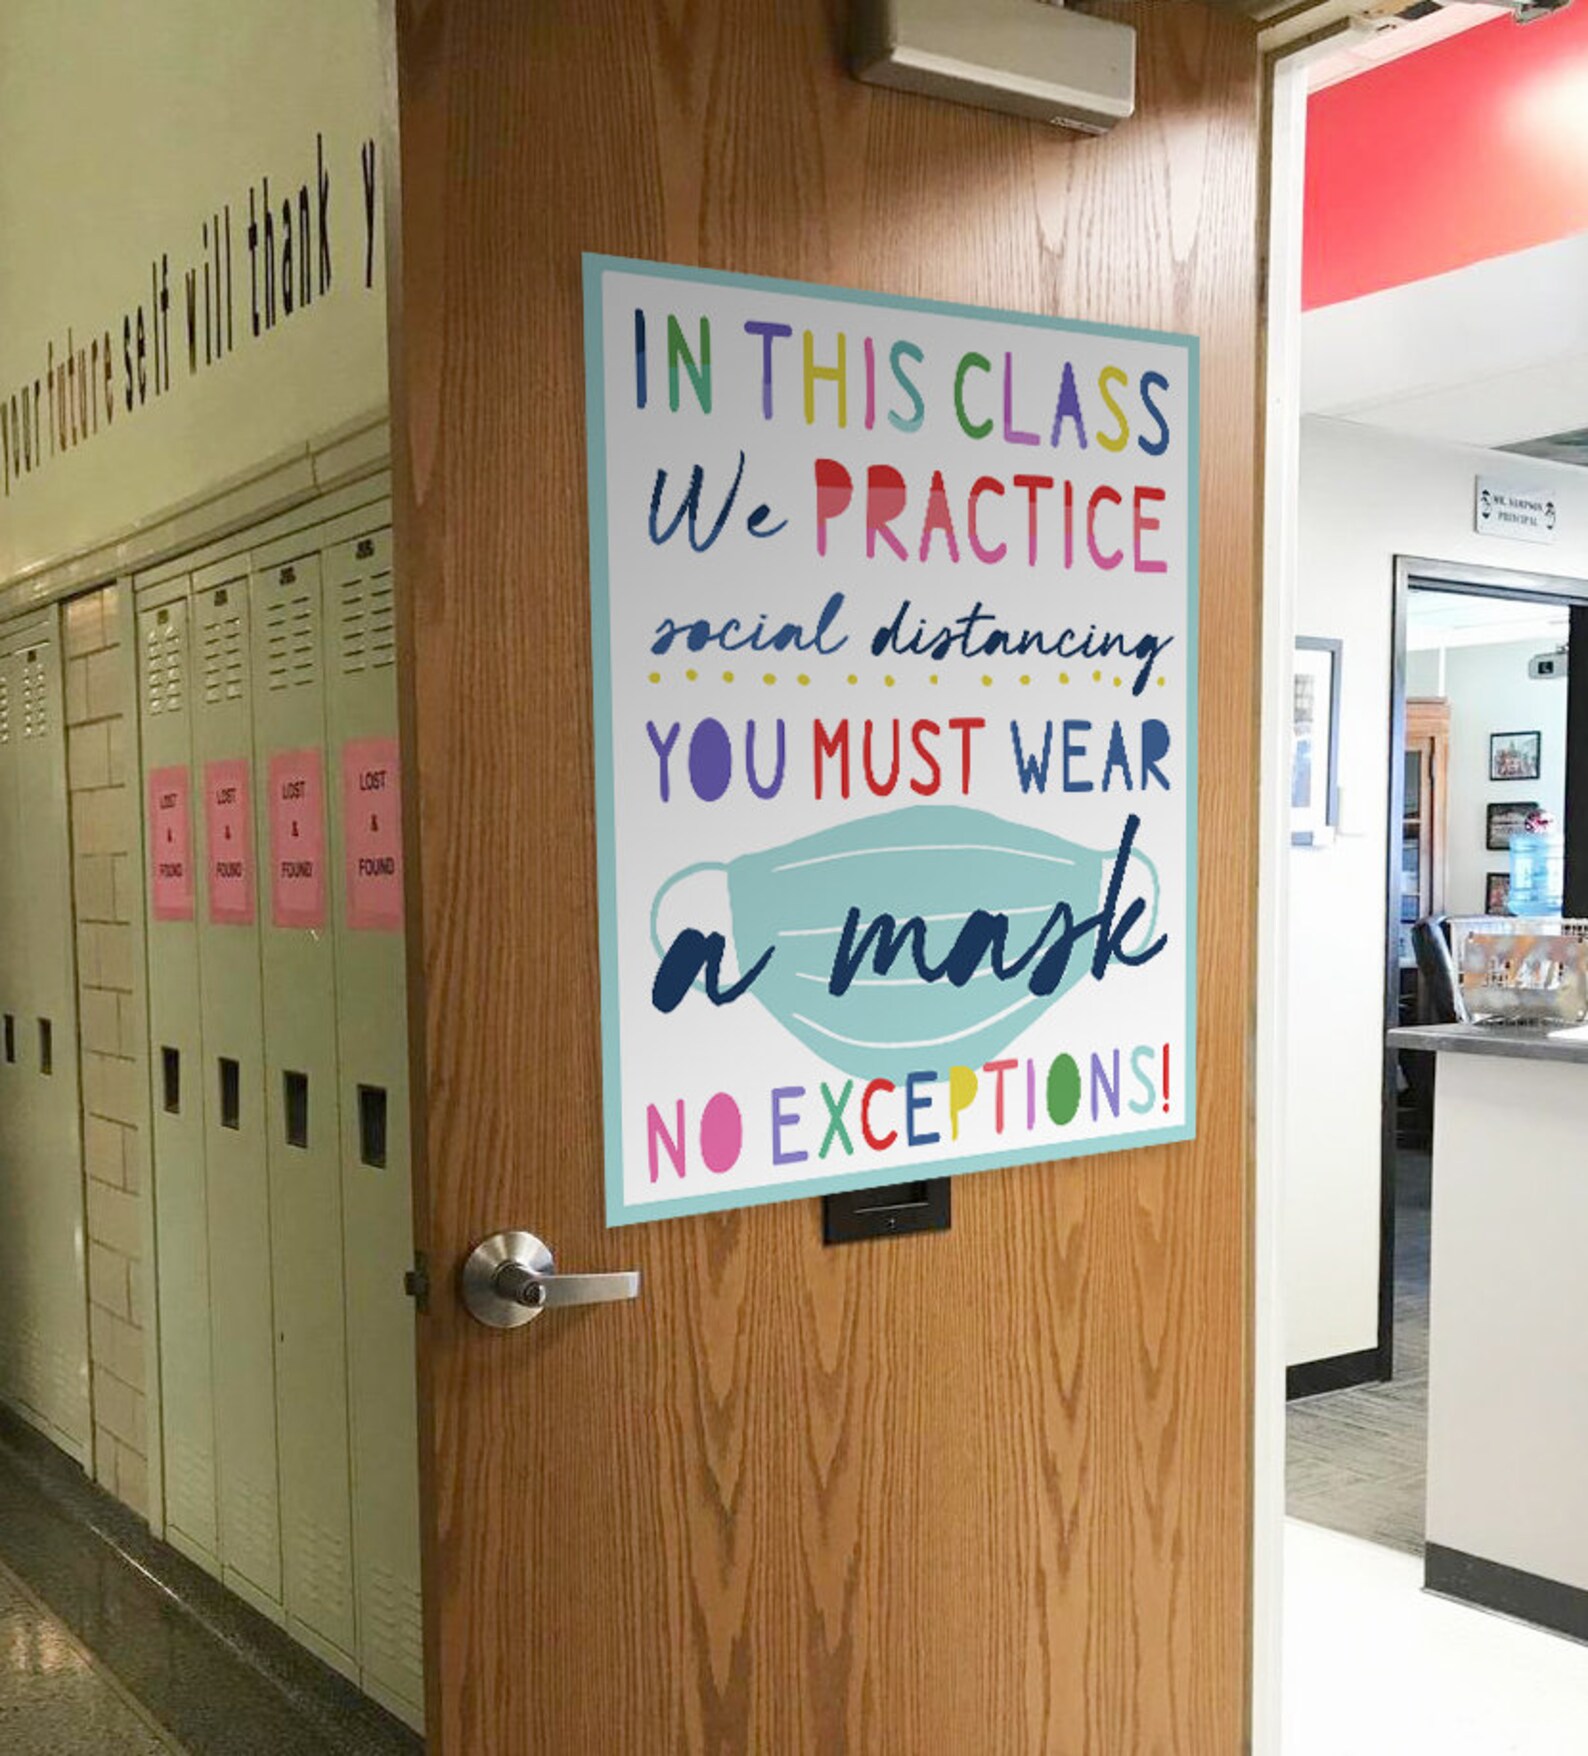 your future self will thank y
IN THIS CLASS
We PRACTICE
social distancing
YOU MUST WEAR
a mask
NO EXCEPTIONS!
LOST
&
FOUND
LOST
&
FOUND
LOST
&
FOUND
LOST
&
FOUND
MR. SAMPSON
PRINCIPAL